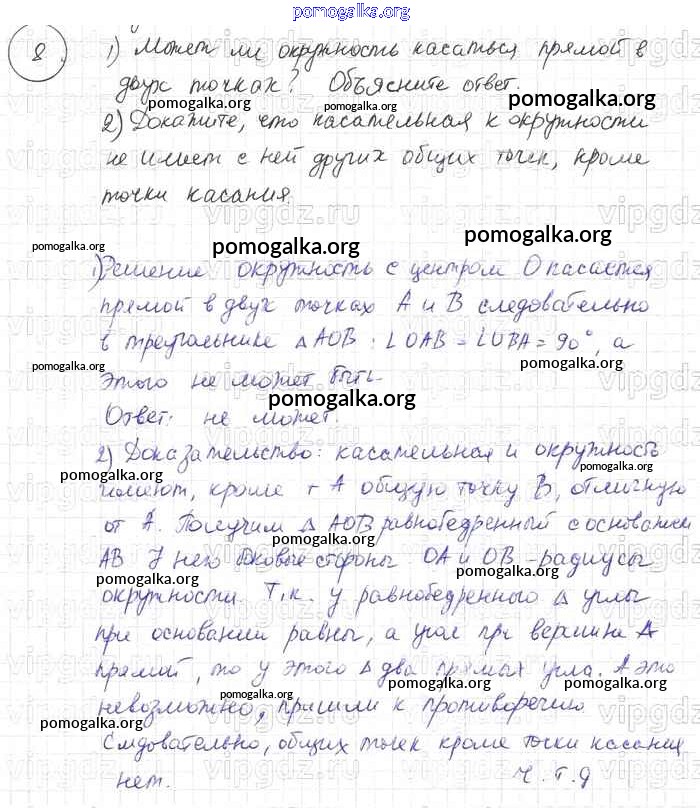 pomogalka.org
8. 1) Может ли окружность касаться прямой в
двух точках? Объясните ответ.
pomogalka.org pomogalka.org pomogalka.org
2) Докажите, что касательная к окружности
не имеет с ней других общих точек, кроме
точки касания.
pomogalka.org pomogalka.org pomogalka.org
1) Решение окружность с центром О касается
прямой в двух точках А и В следовательно
в треугольнике ΔAOB: ∠OAB = ∠OBA = 90°, а
pomogalka.org pomogalka.org
этого не может быть.
pomogalka.org
Ответ: не может.
2) Доказательство: касательная и окружность
pomogalka.org pomogalka.org
имеют, кроме т А общую точку В, отличную
от А. Получим Δ AOB равнобедренный с основанием
pomogalka.org
АВ У него боковые стороны ОА и ОВ – радиусы
pomogalka.org pomogalka.org
окружности. Т.к. у равнобедренного Δ углы
при основании равны, а угол при вершине А
прямой, то у этого Δ два прямых угла. А это
pomogalka.org pomogalka.org pomogalka.org
невозможно, пришли к противоречию
pomogalka.org pomogalka.org
Следовательно, общих точек кроме точки касания
нет. Ч.т.д